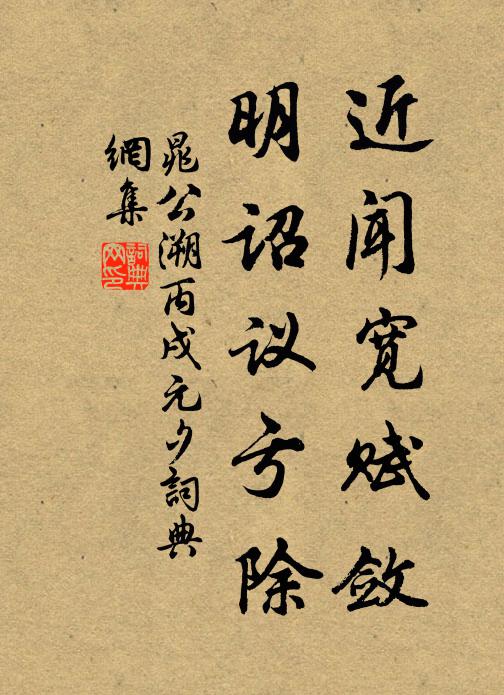 近闻宽赋敛
明诏议亏除
晁公溯丙戌元夕詞典
網集
詞典網印